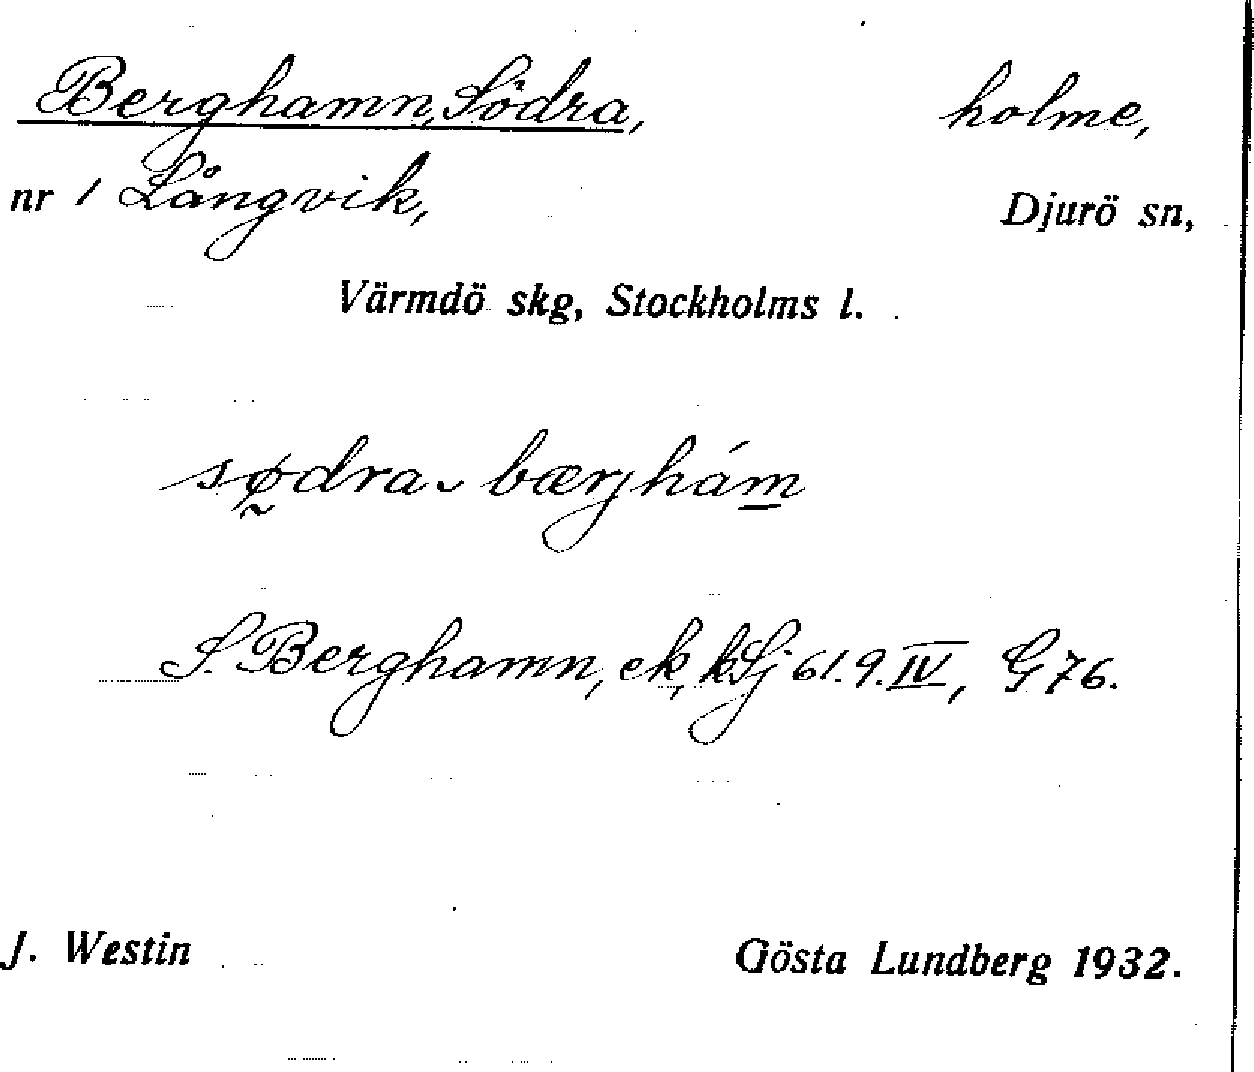 Berghamn, Södra, holme,
nr 1 Långvik, Djurö sn,
Värmdö skg, Stockholms l.
sø̰dra ˬ bærjhám̲
S. Berghamn, ek, kSj 61.9.IV, G 76.
J. Westin Gösta Lundberg 1932.